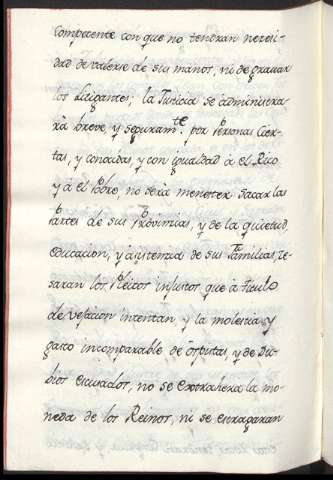 competente con que no tendran necesi-
dad de valerse de sus manos, ni de gravar
los litigantes; la Justicia se administra-
rá breve, y seguram.te por Personas Cier-
tas, y conocidas, y con igualdad á el Rico
y á el Pobre, no será menester sacar las
Partes de sus Provincias, y de la quietud,
educacion, y asistencia de sus Familias, Ce-
saran los Pleitos injustos que á titulo
de vejacion intentan, y la molestia, y
gasto incomparable de disputas, y de Du-
bios escusados, no se extrahera la mo-
neda de los Reinos, ni se estragaran